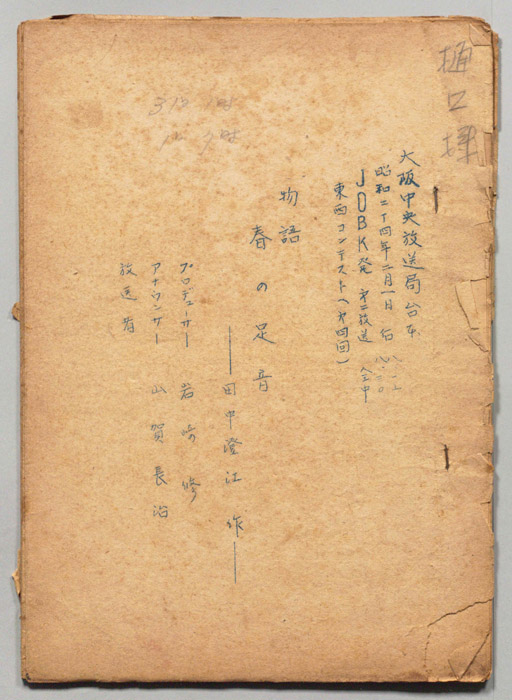 樋口様
大阪中央放送局台本
昭和二十四年二月一日 后 八・一五 八・三〇
JOBK発 第二放送 全中
東西コンテスト(第四回)
物語
春の足音
——田中澄江 作——
プロデューサー 岩崎修
アナウンサー 山賀長治
放送者